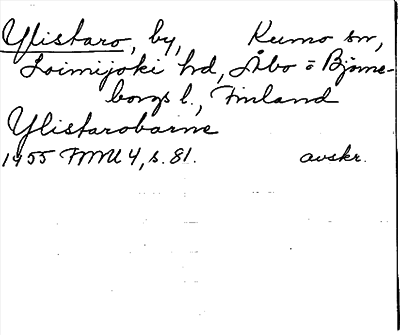 Ylistaro, by, Kumo sn,
Loimijoki hd, Åbo o Björne-
borgs l., Finland
Ylistarobarne
1455 FMU 4, s. 81. avskr.